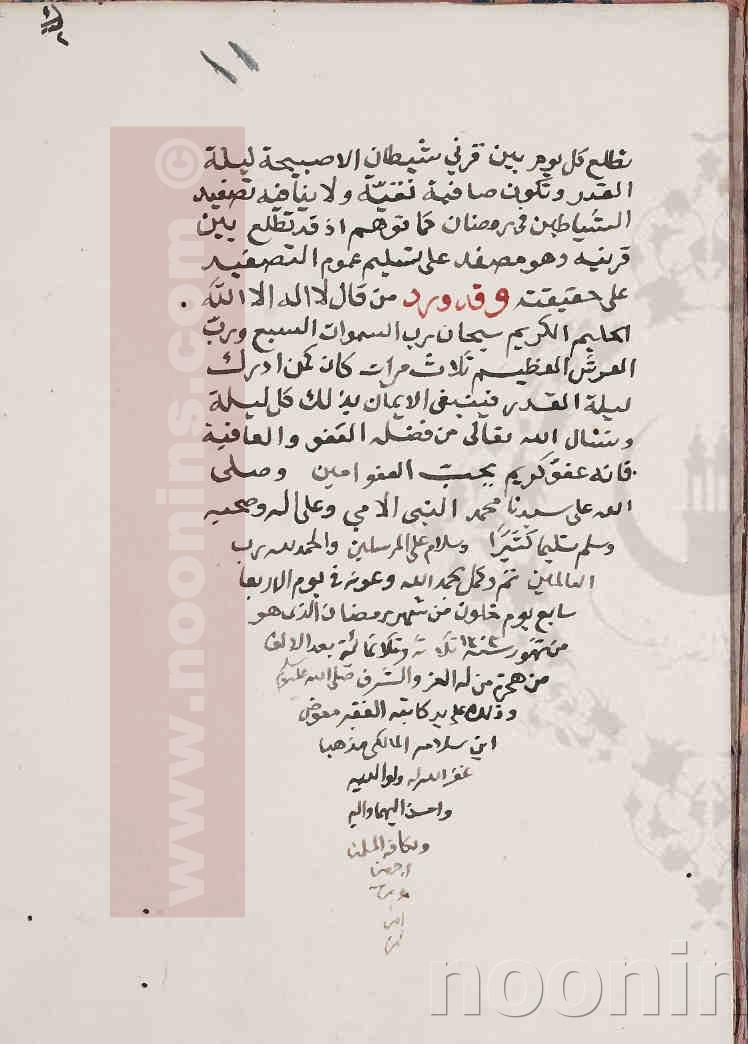 ١١
تطلع كل يوم بين قرني شيطان الا صبيحة ليلة
القدر وتكون صافية نقية ولا ينافيه تصفيد
الشياطين في رمضان كما توهم اذ قد تطلع بين
قرنيه وهو مصفد على تسليم عموم التصفيد
على حقيقته وقد ورد من قال لا اله الا الله
الحليم الكريم سبحان رب السموات السبع ورب
العرش العظيم ثلاث مرات كان كمن ادرك
ليلة القدر فينبغي الاتيان بذلك كل ليلة
ونسال الله تعالى من فضله العفو والعافية
فانه عفو كريم يحب العفو امين وصلى
الله على سيدنا محمد النبي الامي وعلى اله وصحبه
وسلم تسليما كثيرا وسلام على المرسلين والحمد لله رب
العالمين تم وكمل بحمد الله وعونه في يوم الاربعا
سابع يوم خلون من شهر رمضان الذي هو
من شهور سنة ثلاثة وثلاثمائة بعد الالف
من هجرة من له العز والشرف صلى الله عليه وسلم
وذلك على يد كاتبه الفقير معوض
ابن سلامه المالكي مذهبا
غفر الله له ولوالديه
واحسن اليهما واليه
ولكافة المسلمين
اجمعين
امين
www.noonins.com ©
noonin